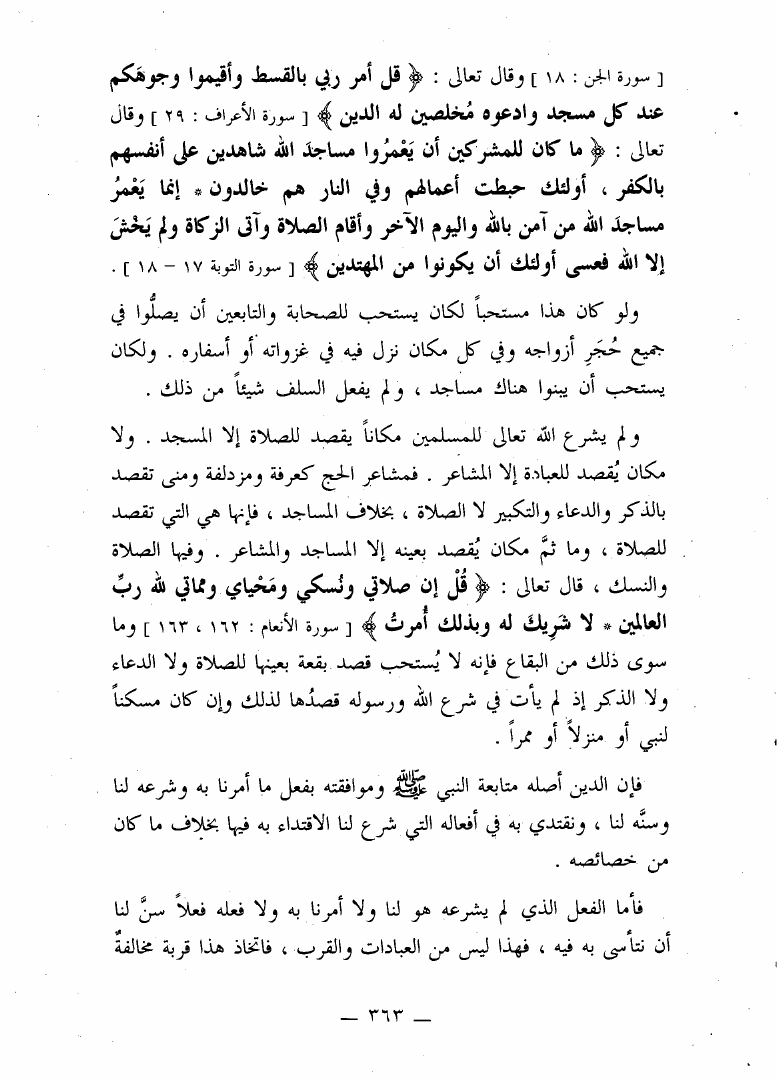 [ سورة الجن : ١٨ ] وقال تعالى : ﴿ قل أمر ربي بالقسط وأقيموا وجوهَكم
عند كل مسجد وادعوه مُخلصين له الدين ﴾ [ سورة الأعراف : ٢٩ ] وقال
تعالى : ﴿ ما كان للمشركين أن يَعْمرُوا مساجدَ الله شاهدين على أنفسهم
بالكفر ، أولئك حبطت أعمالهم وفي النار هم خالدون * إنما يَعْمرُ
مساجدَ الله من آمن بالله واليوم الآخر وأقام الصلاة وآتى الزكاة ولم يَخْشَ
إلا الله فعسى أولئك أن يكونوا من المهتدين ﴾ [ سورة التوبة ١٧ – ١٨ ] .
ولو كان هذا مستحباً لكان يستحب للصحابة والتابعين أن يصلُّوا في
جميع حُجَرِ أزواجه وفي كل مكان نزل فيه في غزواته أو أسفاره . ولكان
يستحب أن يبنوا هناك مساجد ، ولم يفعل السلف شيئاً من ذلك .
ولم يشرع الله تعالى للمسلمين مكاناً يقصد للصلاة إلا المسجد . ولا
مكان يُقصد للعبادة إلا المشاعر . فمشاعر الحج كعرفة ومزدلفة ومنى تقصد
بالذكر والدعاء والتكبير لا الصلاة ، بخلاف المساجد ، فإنها هي التي تقصد
للصلاة ، وما ثمَّ مكان يُقصد بعينه إلا المساجد والمشاعر . وفيها الصلاة
والنسك ، قال تعالى : ﴿ قُلْ إن صلاتي ونُسكي ومَحْياي ومماتي لله ربِّ
العالمين * لا شَرِيكَ له وبذلك أُمرتُ ﴾ [ سورة الأنعام : ١٦٢ ، ١٦٣ ] وما
سوى ذلك من البقاع فإنه لا يُستحب قصد بقعة بعينها للصلاة ولا الدعاء
ولا الذكر إذ لم يأت في شرع الله ورسوله قصدُها لذلك وإن كان مسكناً
لنبي أو منزلاً أو ممراً .
فإن الدين أصله متابعة النبي ﷺ وموافقته بفعل ما أمرنا به وشرعه لنا
وسنَّه لنا ، ونقتدي به في أفعاله التي شرع لنا الاقتداء به فيها بخلاف ما كان
من خصائصه .
فأما الفعل الذي لم يشرعه هو لنا ولا أمرنا به ولا فعله فعلاً سنَّ لنا
أن نتأسى به فيه ، فهذا ليس من العبادات والقرب ، فاتخاذ هذا قربة مخالفةٌ
— ٣٦٣ —